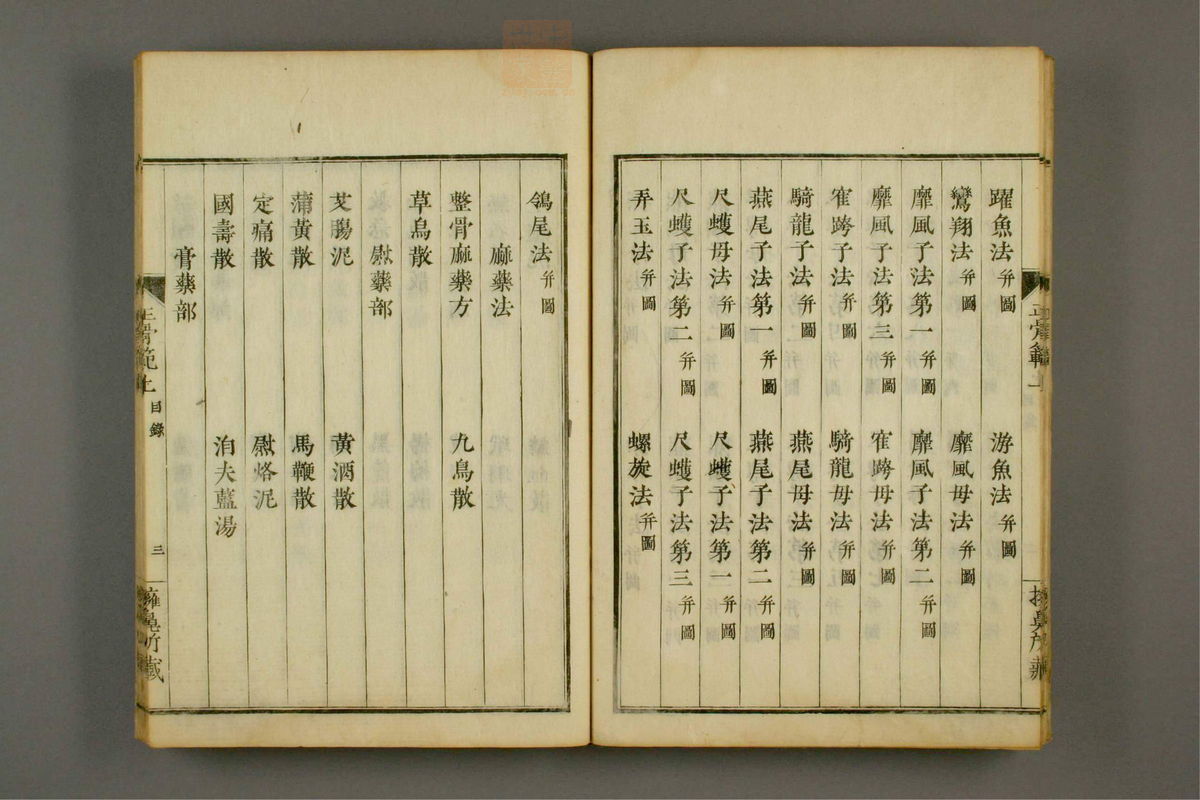 躍魚法 幷圖 游魚法 幷圖
鸞翔法 幷圖 靡風母法 幷圖
靡風子法第一 幷圖 靡風子法第二 幷圖
靡風子法第三 幷圖 寉跨母法 幷圖
寉跨子法 幷圖 騎龍母法 幷圖
騎龍子法 幷圖 燕尾母法 幷圖
燕尾子法第一 幷圖 燕尾子法第二 幷圖
尺蠖母法 幷圖 尺蠖子法第一 幷圖
尺蠖子法第二 幷圖 尺蠖子法第三 幷圖
弄玉法 幷圖 螺旋法 幷圖
鴿尾法 幷圖
麻藥法
整骨麻藥方 九烏散
草烏散
熨藥部
艾膓泥 黃酒散
蒲黃散 馬鞭散
定痛散 熨烙泥
國壽散 泊夫藍湯
膏藥部
正骨範上 目錄 三